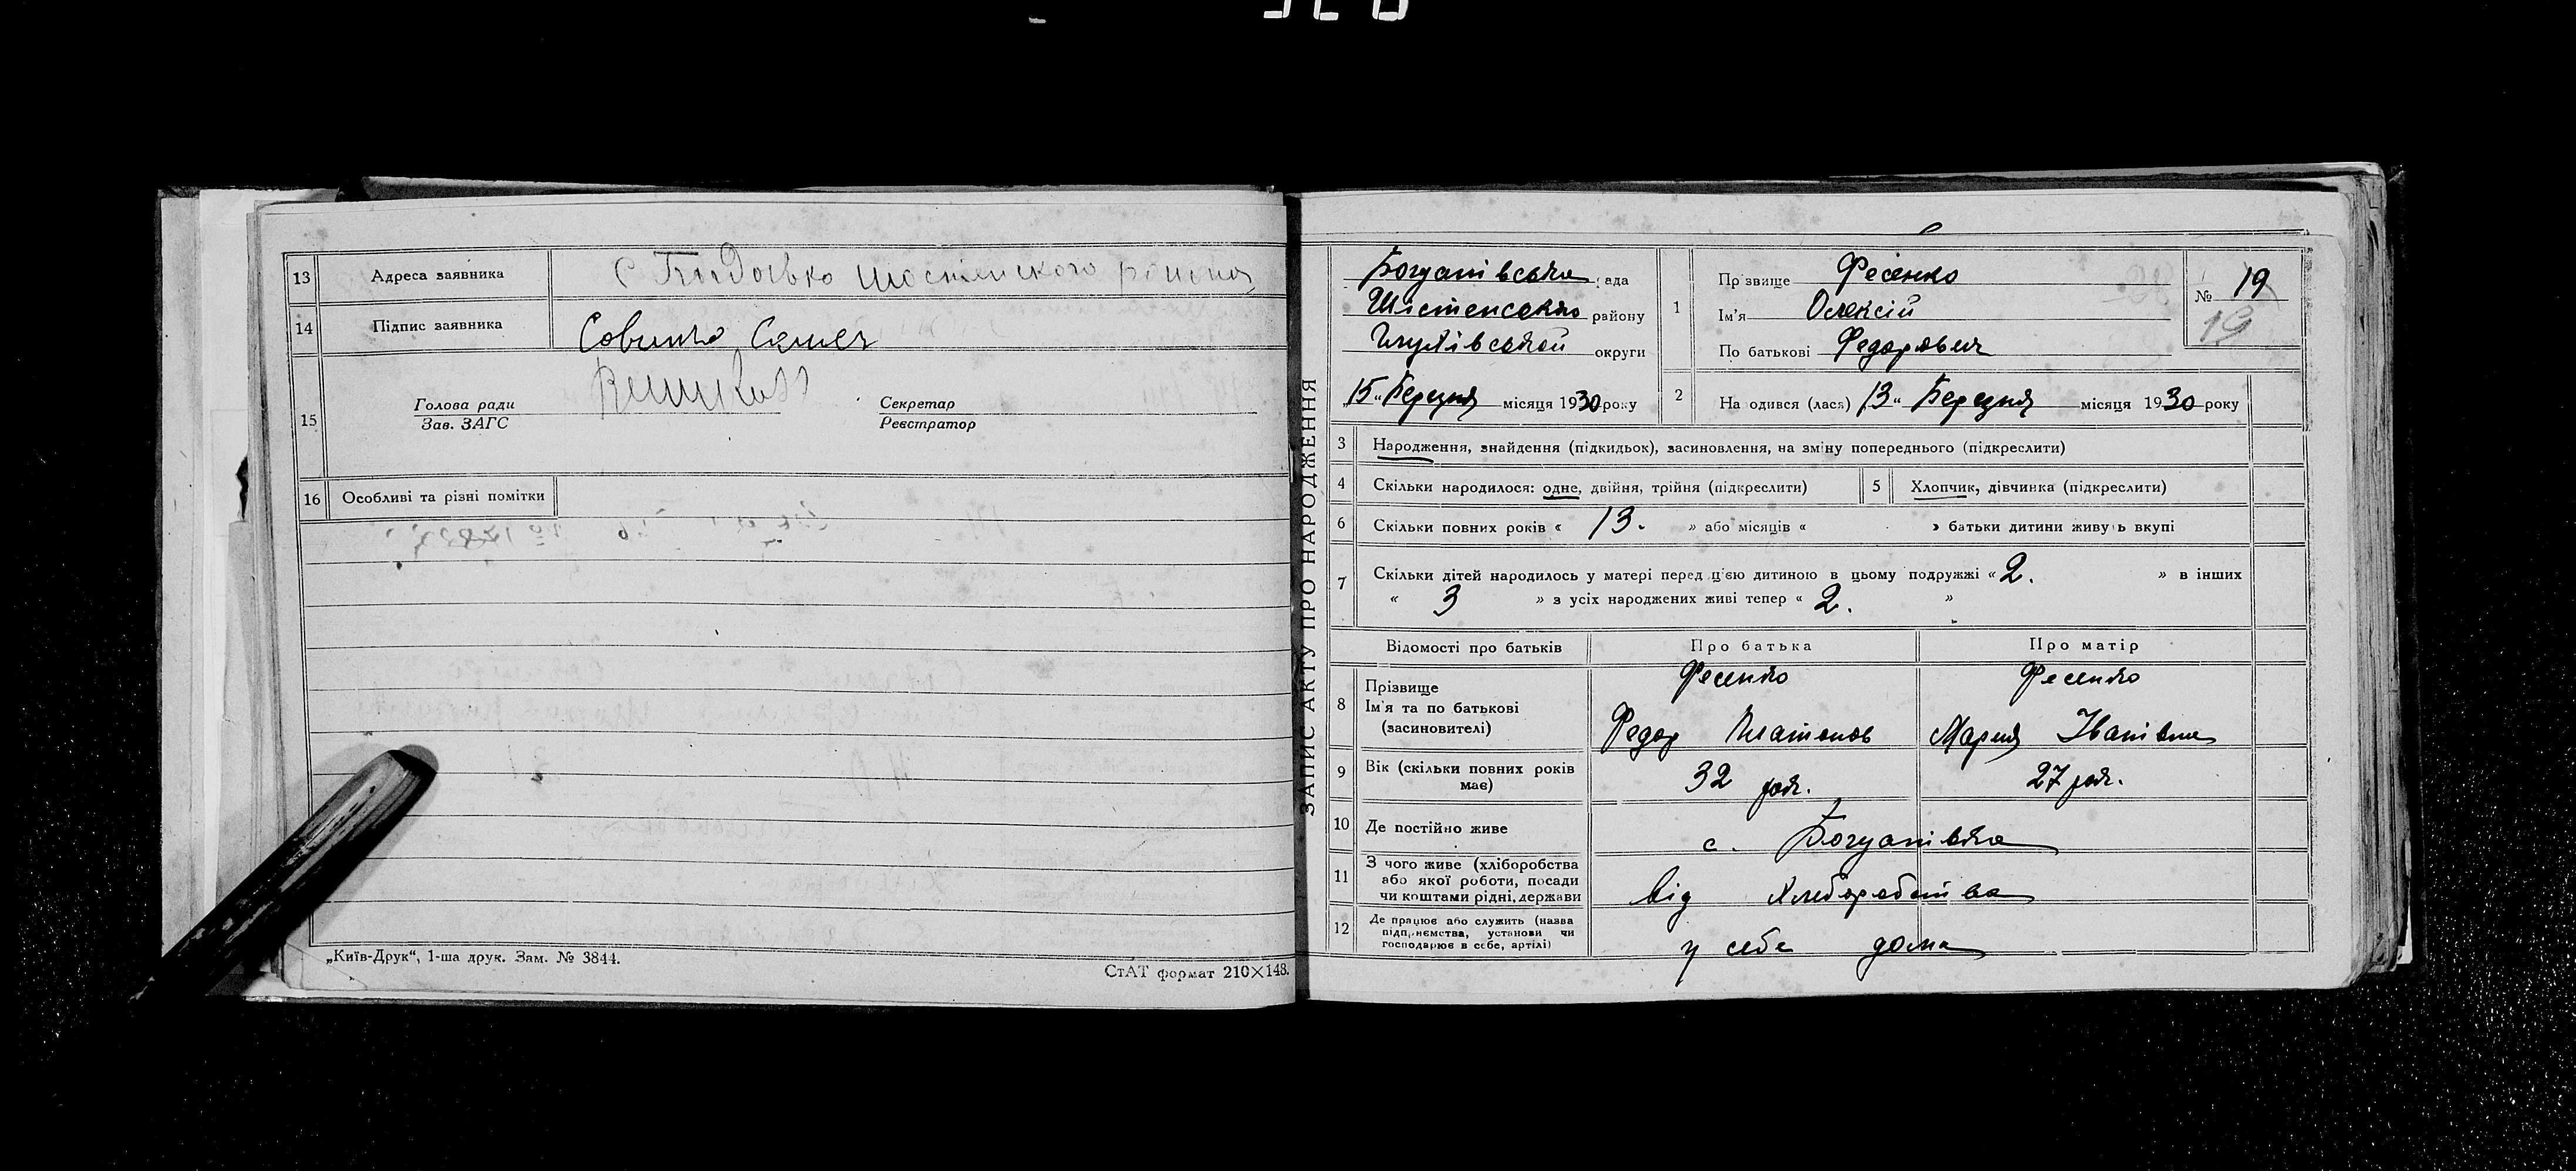 13 Адреса заявника с
14 Підпис заявника Савинко Семен
15 Голова ради Секретар
Зав. ЗАГС Реєстратор
16 Особливі та різні помітки
„Київ-Друк“, 1-ша друк. Зам. № 3844.
СтАТ формат 210×148.
ЗАПИС АКТУ ПРО НАРОДЖЕННЯ
рада
району
Глухівської округи
„15“ Березня місяця 1930 року
1 Прізвище Фесенко
Ім'я Олексій
По батькові Федорович
№ 19
19
2 Народився (лася) „13“ Березня місяця 1930 року
3 Народження, знайдення (підкидьок), засиновлення, на зміну попереднього (підкреслити)
4 Скільки народилося: одне, двійня, трійня (підкреслити) 5 Хлопчик, дівчинка (підкреслити)
6 Скільки повних років « 13. » або місяців « » батьки дитини живуть вкупі
7 Скільки дітей народилось у матері перед цією дитиною в цьому подружжі « 2. » в інших
« 3 » з усіх народжених живі тепер « 2. »
Відомості про батьків Про батька Про матір
8 Прізвище Фесенко Фесенко
Ім'я та по батькові Федор Платонов Мария Іванівна
(засиновителі)
9 Вік (скільки повних років має) 32 рок. 27 рок.
10 Де постійно живе с. Богданівка
11 З чого живе (хліборобства
або якої роботи, посади
чи коштами рідні, держави від хлеборобства
12 Де працює або служить (назва
підприємства, установи чи
господарює в себе, артілі) у себе дома